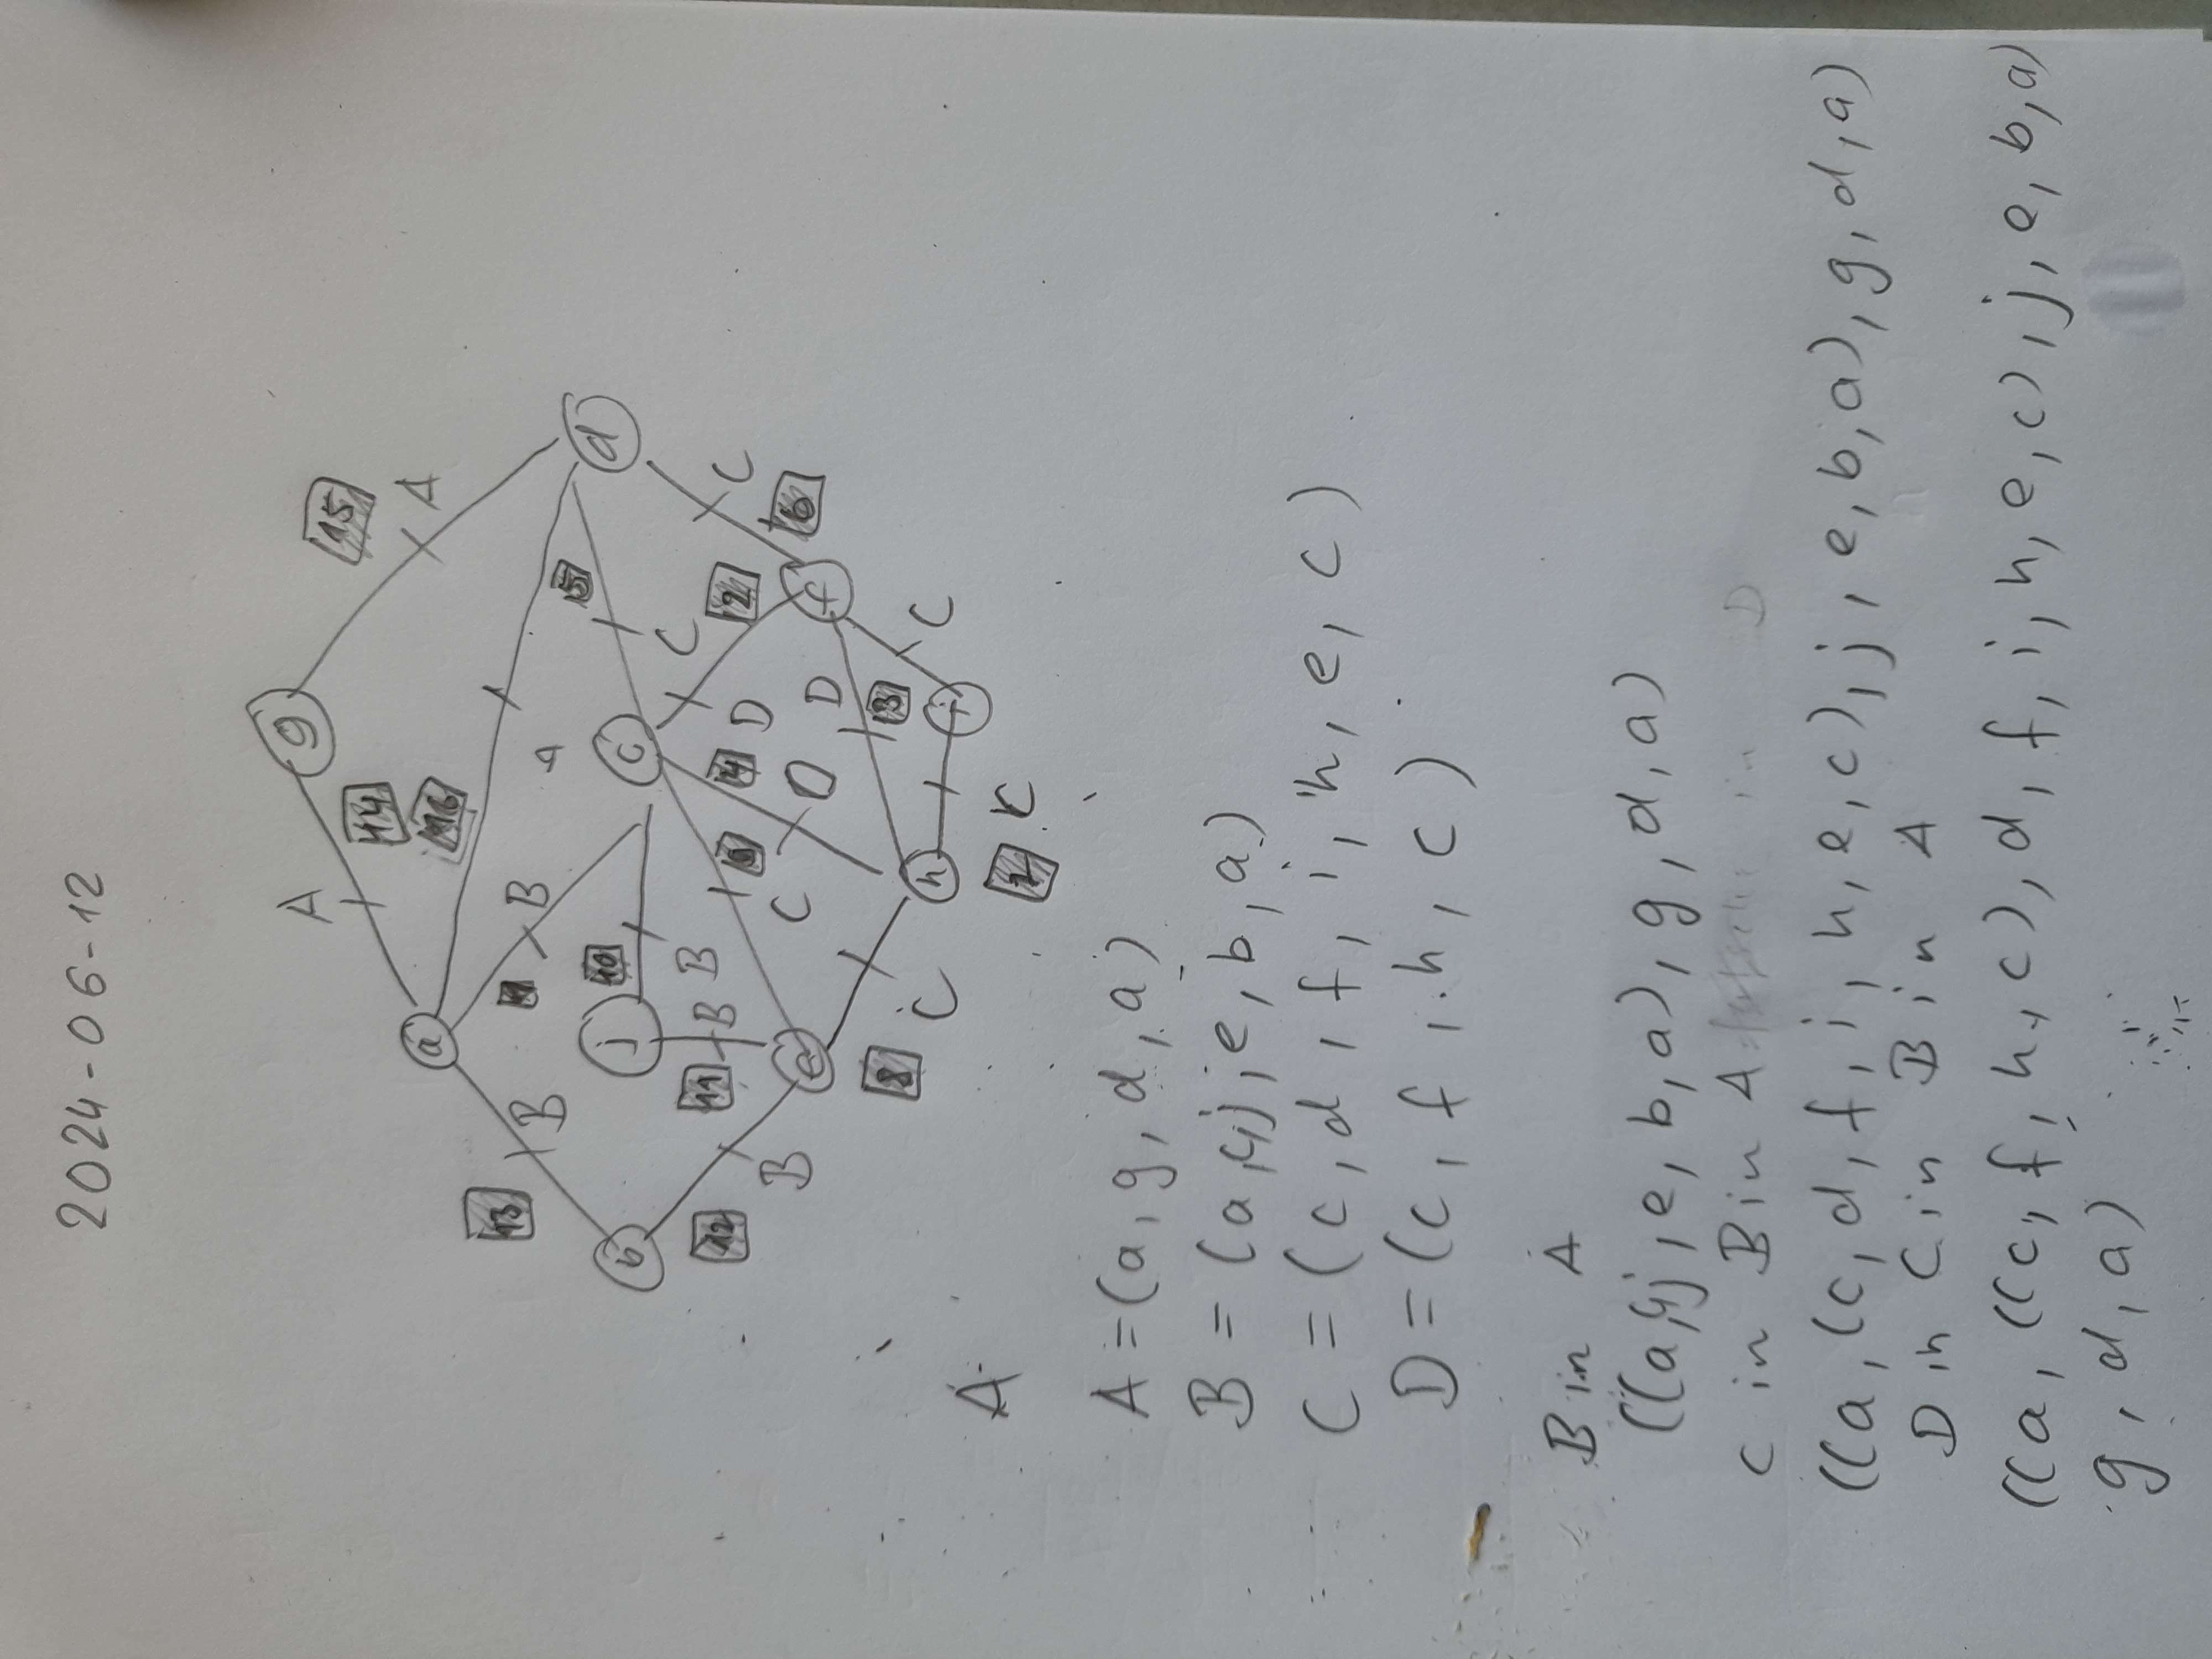 2024-06-12
g
15
A
A
14
16
A
a
d
B
1
5
C
c
C
6
13
B
10
j
B
B
11
9
4
D
2
f
D
3
C
b
12
B
e
C
8
C
h
i
C
7
A
A = (a, g, d, a)
B = (a, c, j, e, b, a)
C = (c, d, f, i, h, e, c)
D = (c, f, h, c)
B in A
((a, c, j, e, b, a), g, d, a)
C in B in A
((a, (c, d, f, i, h, e, c), j, e, b, a), g, d, a)
D in C in B in A
((a, ((c, f, h, c), d, f, i, h, e, c), j, e, b, a)
g, d, a)